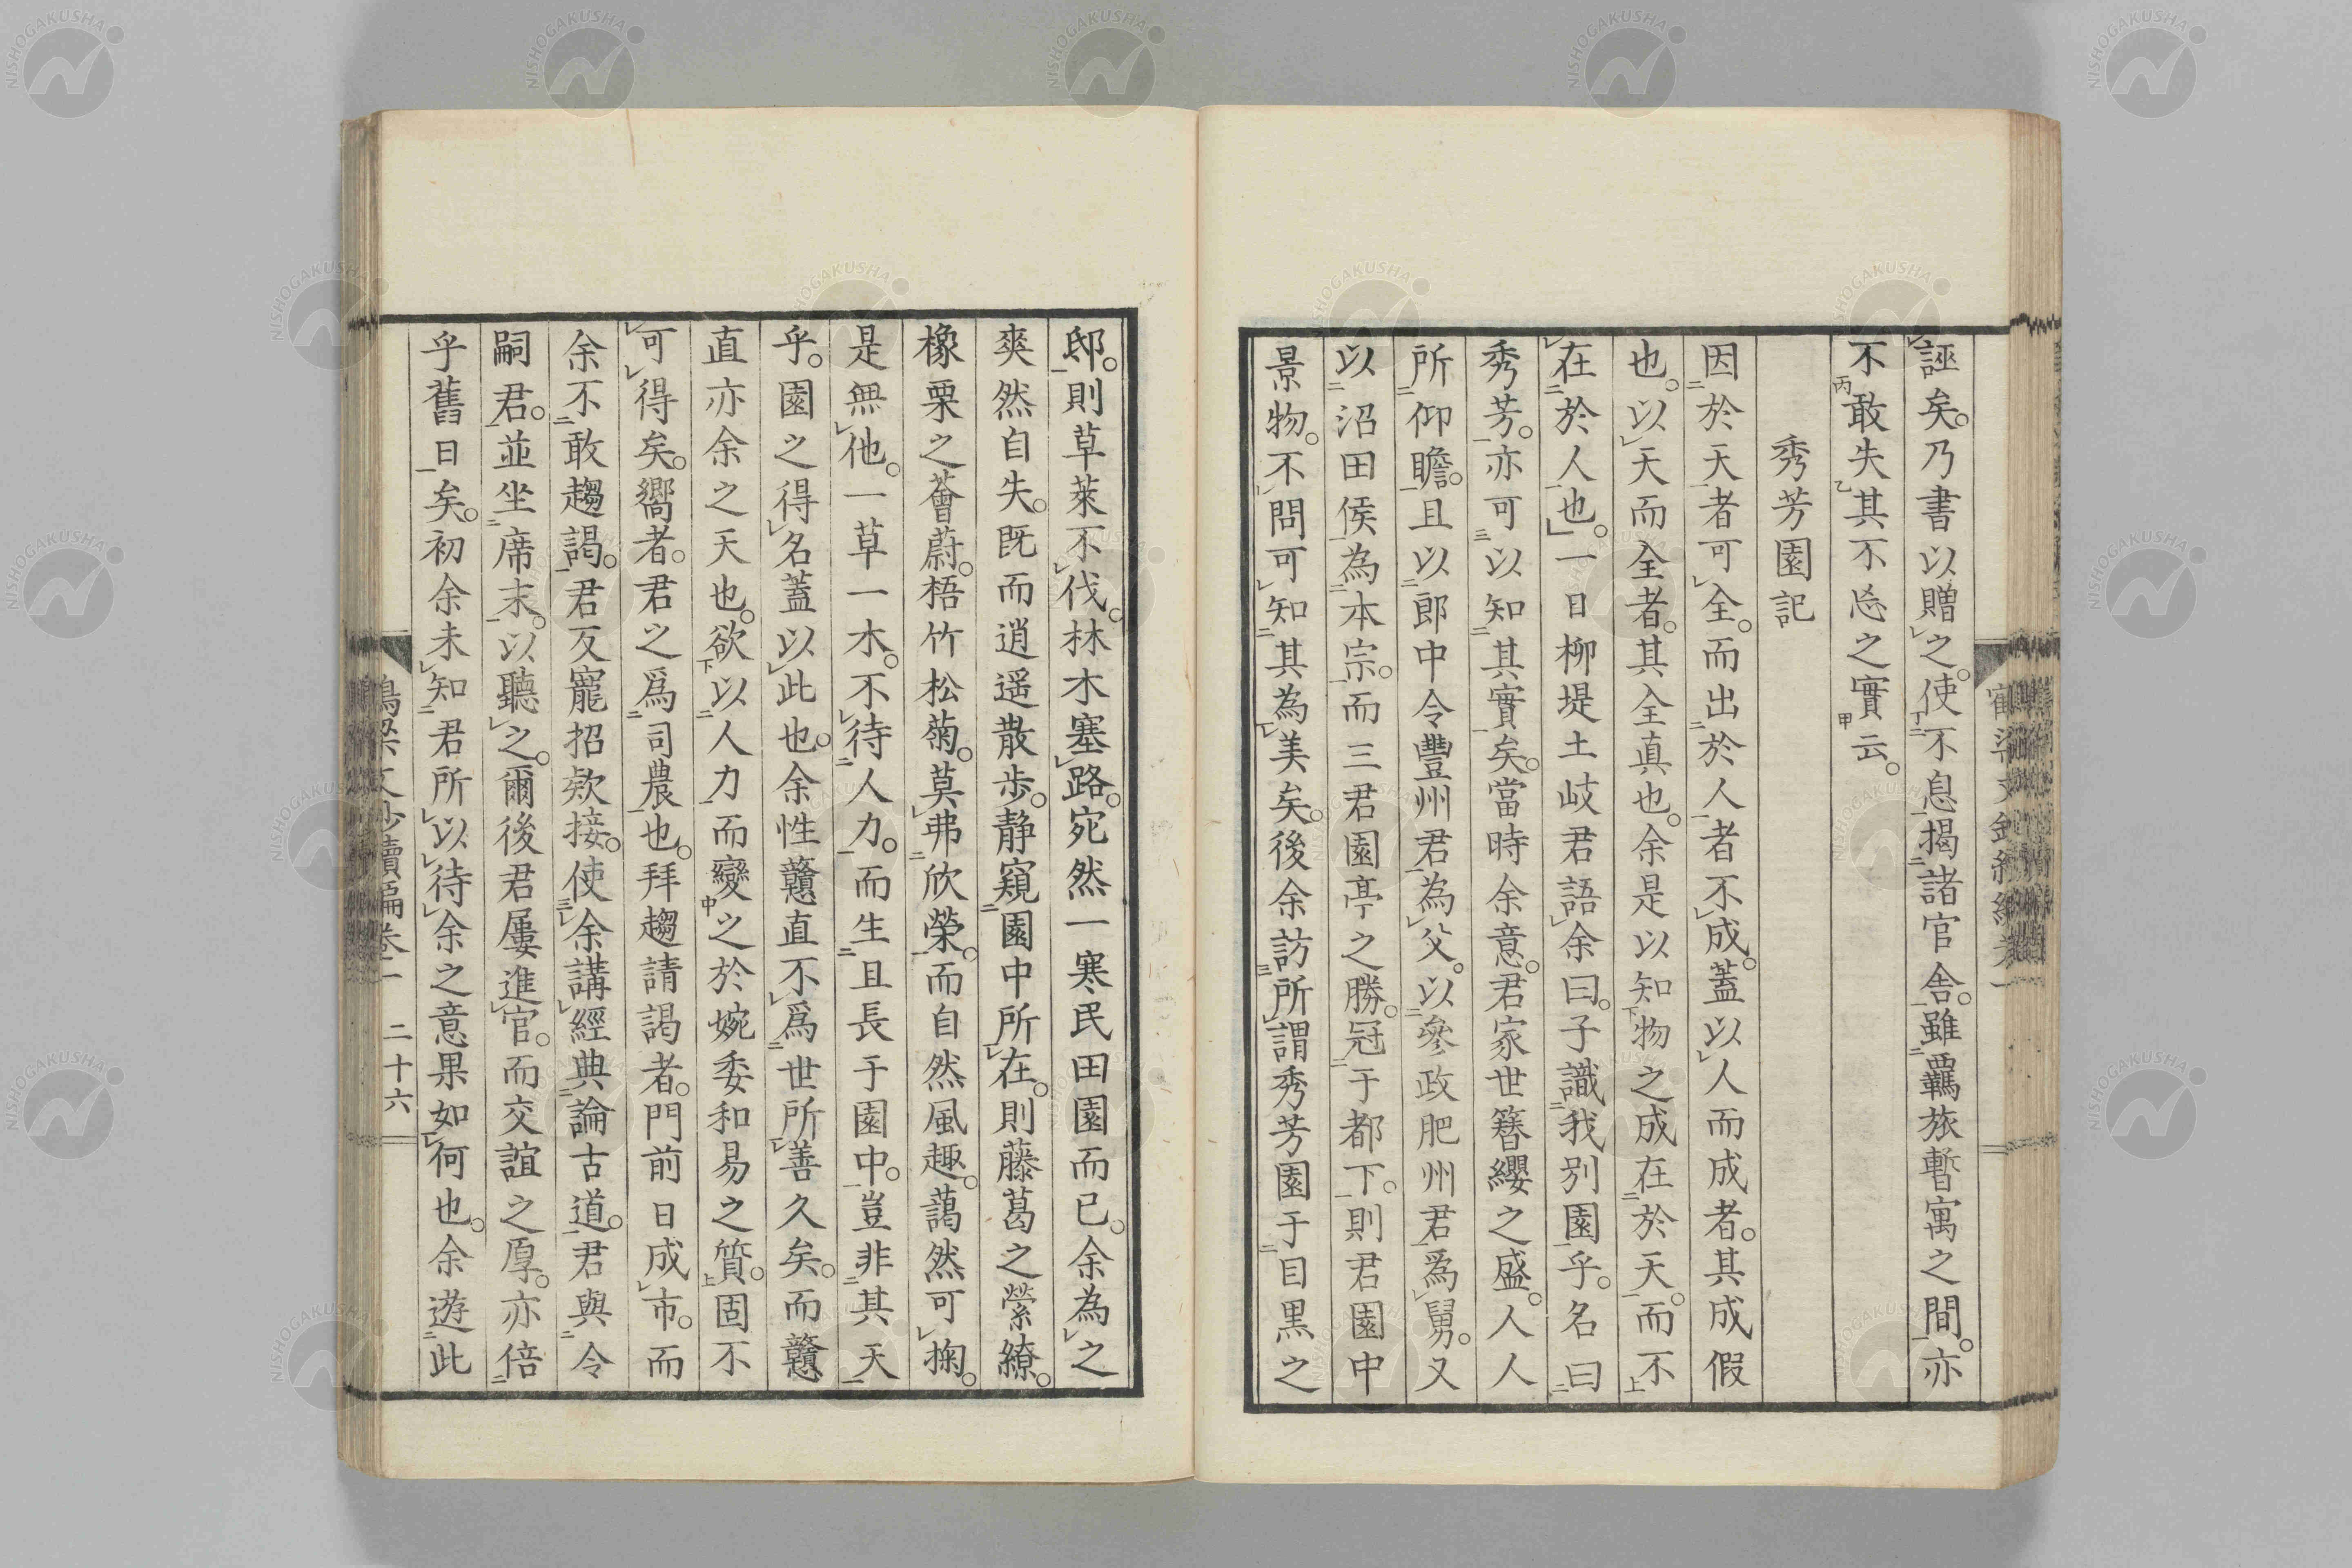 誣矣。乃書以贈之。使不息揭諸官舍。雖羈旅暫寓之間。亦
不敢失其不忘之實云。
秀芳園記
因於天者可全。而出於人者不成。蓋以人而成者。其成假
也。以天而全者。其全真也。余是以知物之成在於天。而不
在於人也。一日柳堤土岐君語余曰。子識我別園乎。名曰
秀芳。亦可以知其實矣。當時余意。君家世簪纓之盛。人人
所仰瞻。且以郎中令豐州君為父。以參政肥州君爲舅。又
以沼田侯為本宗。而三君園亭之勝。冠于都下。則君園中
景物。不問可知其為美矣。後余訪所謂秀芳園于目黑之
邸。則草萊不伐。林木塞路。宛然一寒民田園而已。余為之
爽然自失。既而逍遥散歩。静窺園中所在。則藤葛之縈繚。
橡栗之薈蔚。梧竹松菊。莫弗欣榮。而自然風趣。藹然可掬。
是無他。一草一木。不待人力。而生且長于園中。豈非其天
乎。園之得名蓋以此也。余性戇直不爲世所善久矣。而戇
直亦余之天也。欲以人力而變之於婉委和易之質。固不
可得矣。嚮者。君之爲司農也。拜趨請謁者。門前日成市。而
余不敢趨謁。君反寵招欵接。使余講經典論古道。君與令
嗣君。並坐席末。以聽之。爾後君屢進官。而交誼之厚。亦倍
乎舊日矣。初余未知君所以待余之意果如何也。余遊此
鶴梁文鈔續編卷二 二十六